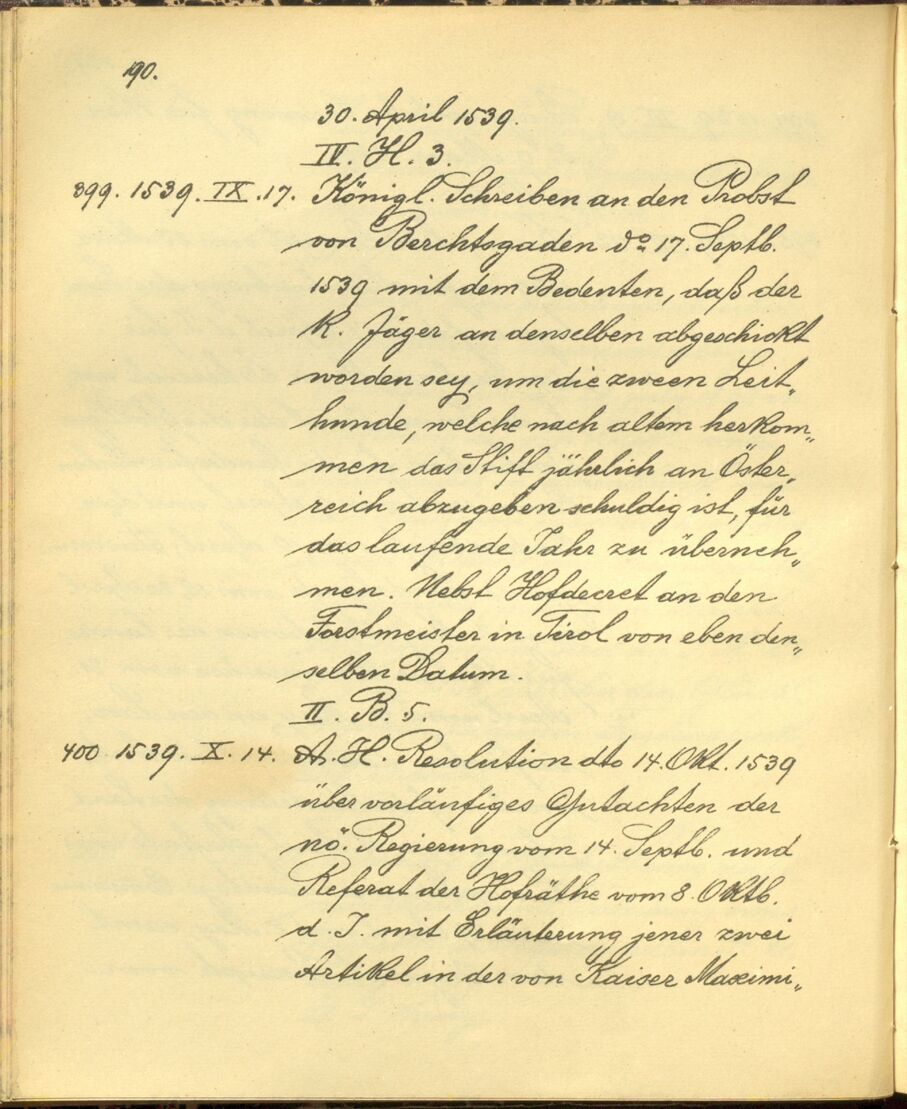 190.
30. April 1539.
IV. H. 3.
399. 1539. IX. 17. Königl. Schreiben an den Probst
von Berchtsgaden do 17. Septb.
1539 mit dem Bedenten, daß der
K. Jäger an denselben abgeschickt
worden sey, um die zween Leit„
hunde, welche nach altem herkom„
men das Stift jährlich an Öster„
reich abzugeben schuldig ist, für
das laufende Jahr zu überneh„
men. Nebst Hofdecret an den
Forstmeister in Tirol von eben den„
selben Datum.
II. B. 5.
400 1539. X. 14. A. H. Resolution dto 14. Okt. 1539
über vorläufiges Gutachten der
nö. Regierung vom 14. Septb. und
Referat der Hofräthe vom 8. Oktb.
d. J. mit Erläuterung jener zwei
Artikel in der von Kaiser Maximi„